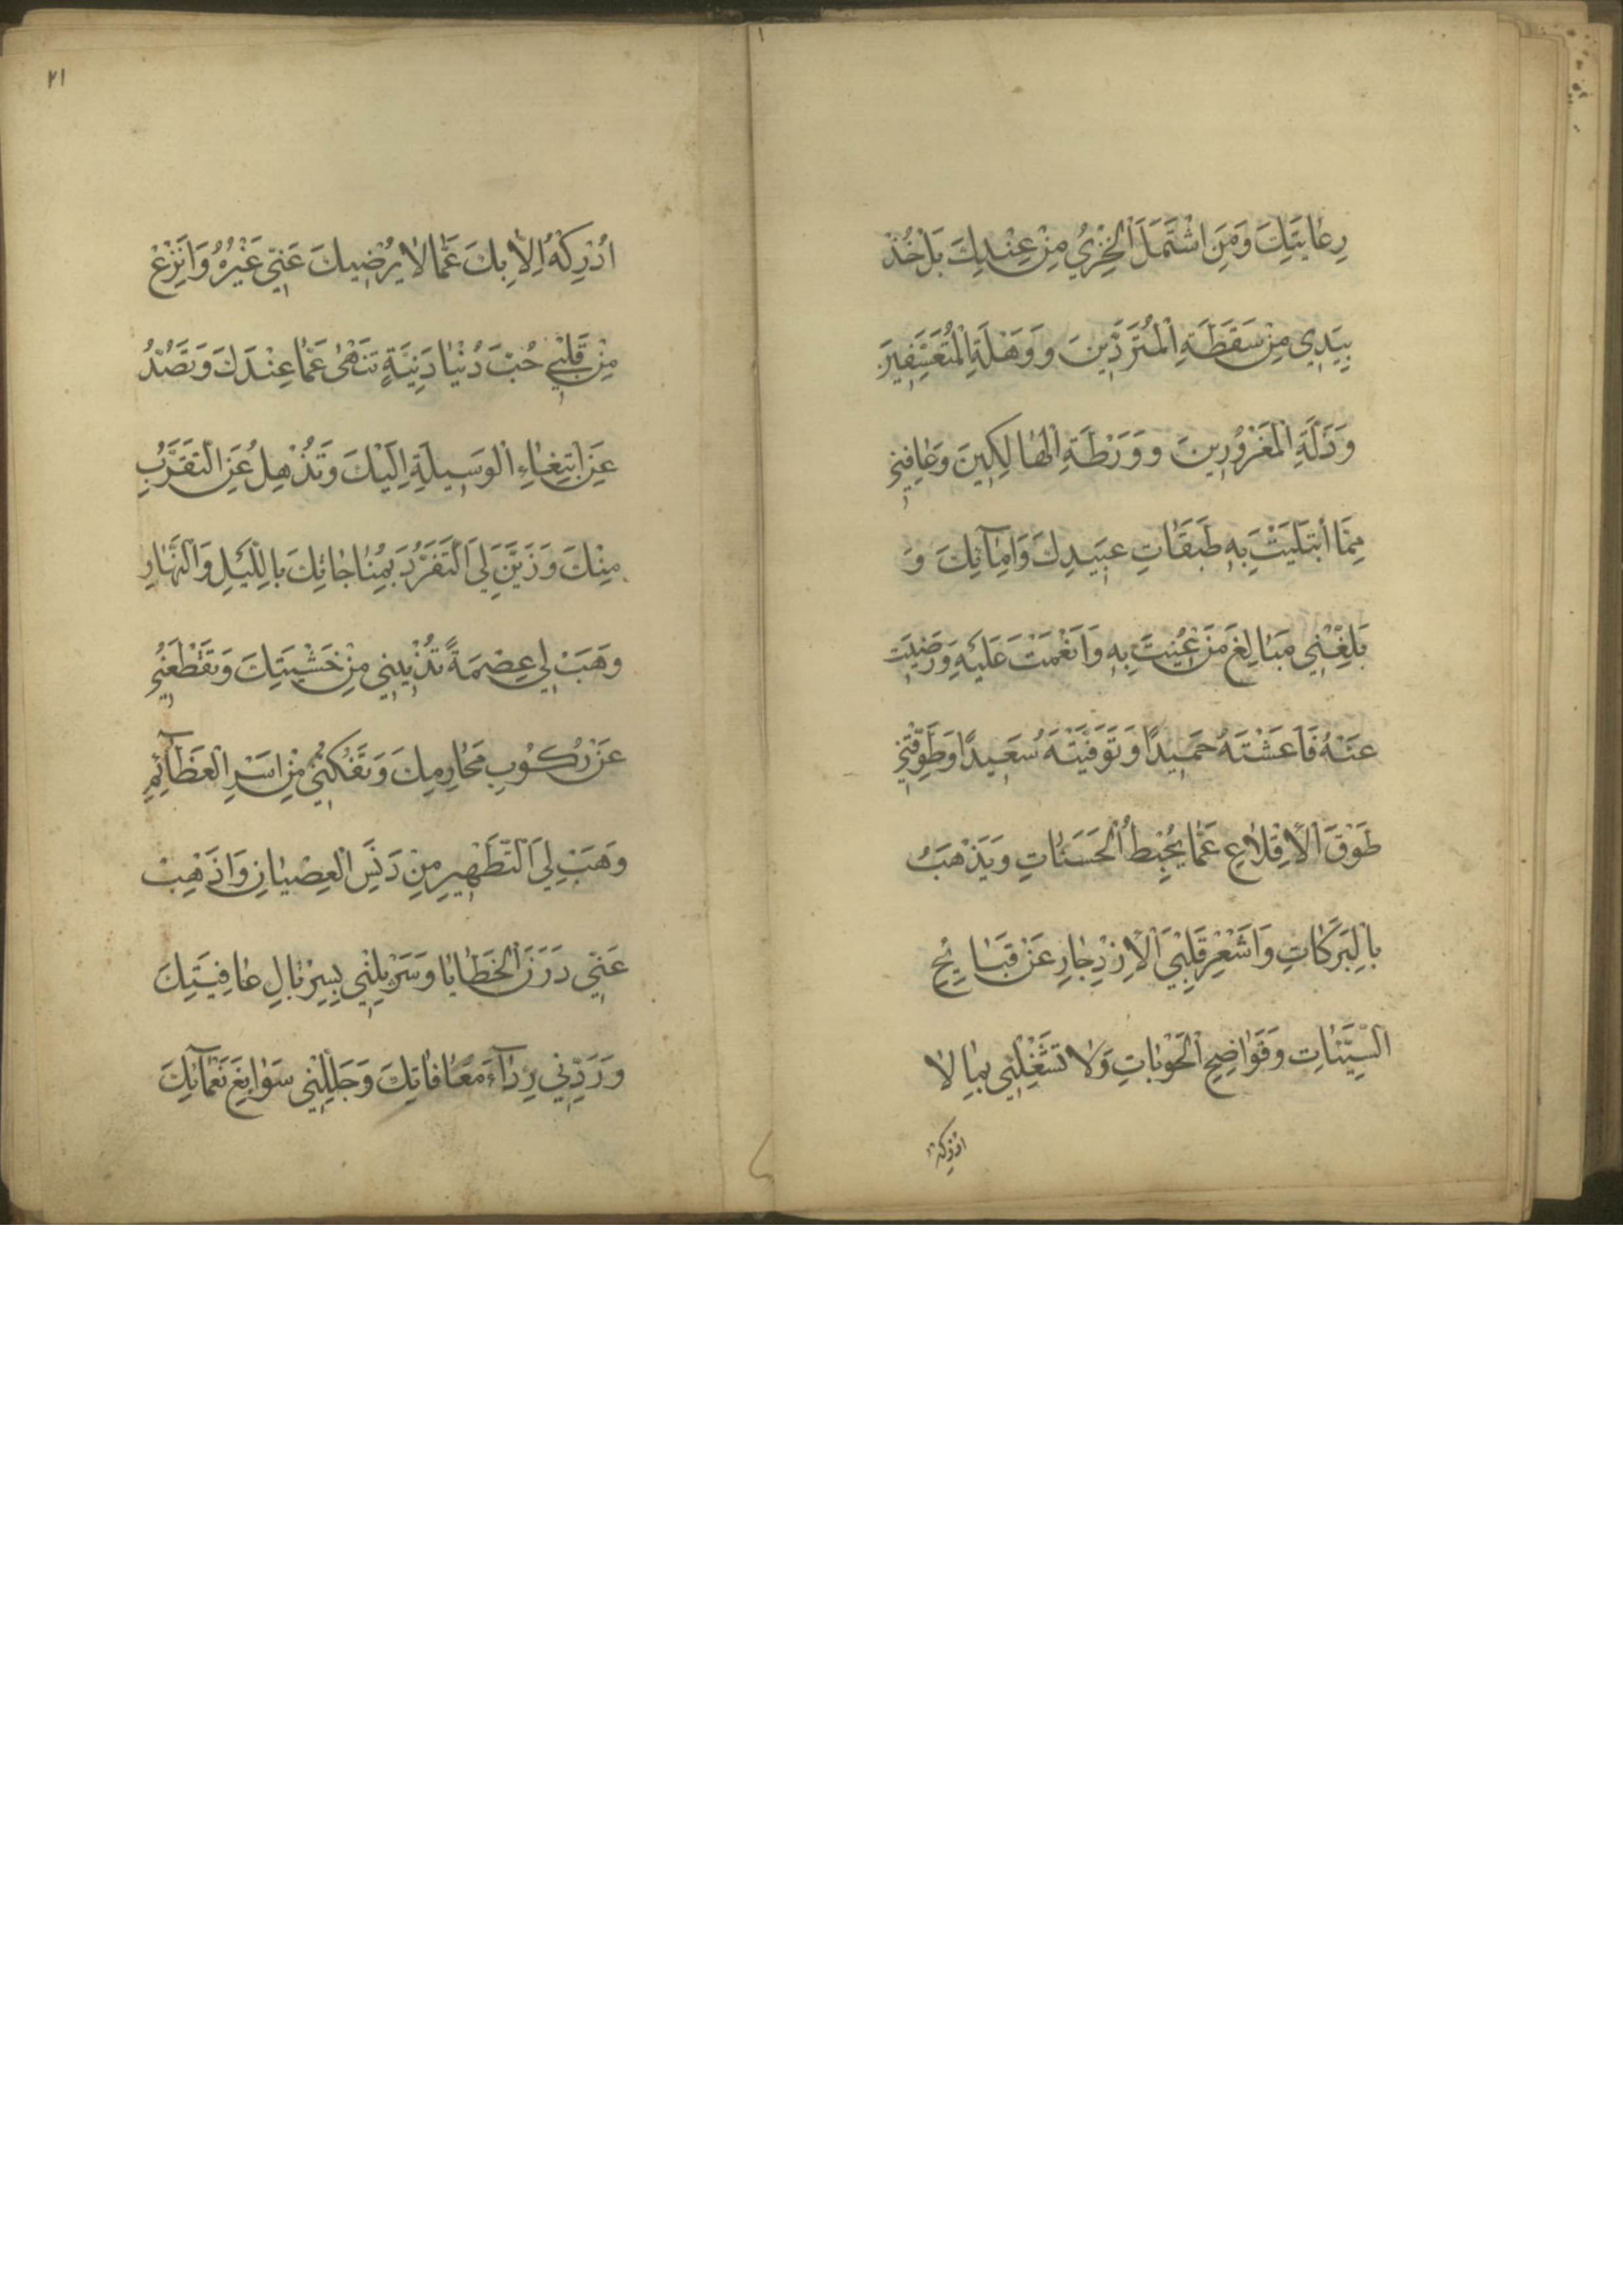 رِعٰايَتِكَ وَمَنِ اشْتَمَلَ الْخِزْيُ مِنْ عِنْدِكَ بَلْ خُذْ
بِيَدِي مِنْ سَقَطَةِ الْمُتَرَدِّينَ وَوَهْلَةِ الْمُتَعَسِّفِينَ
وَذَلَّةِ الْمَغْرُورِينَ وَوَرْطَةِ الْهٰالِكِينَ وَعٰافِنِي
مِمَّا ابْتَلَيْتَ بِهِ طَبَقٰاتِ عَبِيدِكَ وَاِمٰآئِكَ وَ
بَلِّغْنِي مَبٰالِغَ مَنْ عُنِيتَ بِهِ وَاَنْعَمْتَ عَلَيْهِ وَرَضِيتَ
عَنْهُ فَاَعَشْتَهُ حَمِيدًا وَتَوَفَّيْتَهُ سَعِيدًا وَطَوِّقْنِي
طَوْقَ الْاِقْلٰاعِ عَمّٰا يُحْبِطُ الْحَسَنٰاتِ وَيَذْهَبُ
بِالْبَرَكٰاتِ وَاَشْعِرْ قَلْبِيَ الْاِزْدِجٰارِ عَنْ قَبٰايِحِ
السَّيِّئٰاتِ وَفَوٰاضِحِ الْحَوْبٰاتِ وَلٰا تَشْغَلْنِي بِمٰا لٰا
ادركه
٢١
اُدْرِكْهُ اِلّٰا بِكَ عَمّٰا لٰا يُرْضِيكَ عَنِّي غَيْرُهُ وَانْزِعْ
مِنْ قَلْبِي حُبَّ دُنْيٰا دَنِيَّةٍ تَنْهٰى عَمّٰا عِنْدَكَ وَتَصُدُّ
عَنِ ابْتِغٰاءِ الْوَسِيلَةِ اِلَيْكَ وَتُذْهِلُ عَنِ التَّقَرُّبِ
مِنْكَ وَزَيِّنْ لِيَ التَّفَرُّدَ بِمُنٰاجٰاتِكَ بِاللَّيْلِ وَالنَّهٰارِ
وَهَبْ لِي عِصْمَةً تُدْنِينِي مِنْ خَشْيَتِكَ وَتَقْطَعُنِي
عَنْ رُكُوبِ مَحٰارِمِكَ وَتَفُكُّنِي مِنْ اَسْرِ الْعَظٰآئِمِ
وَهَبْ لِيَ التَّطْهِيرِ مِنْ دَنَسِ الْعِصْيٰانِ وَاَذْهِبْ
عَنِّي دَرَنَ الْخَطٰايٰا وَسَرْبِلْنِي بِسِرْبٰالِ عٰافِيَتِكَ
وَرَدِّنِي رِدٰآءَ مُعٰافٰاتِكَ وَجَلِّلْنِي سَوٰابِغَ نَعْمٰآئِكَ